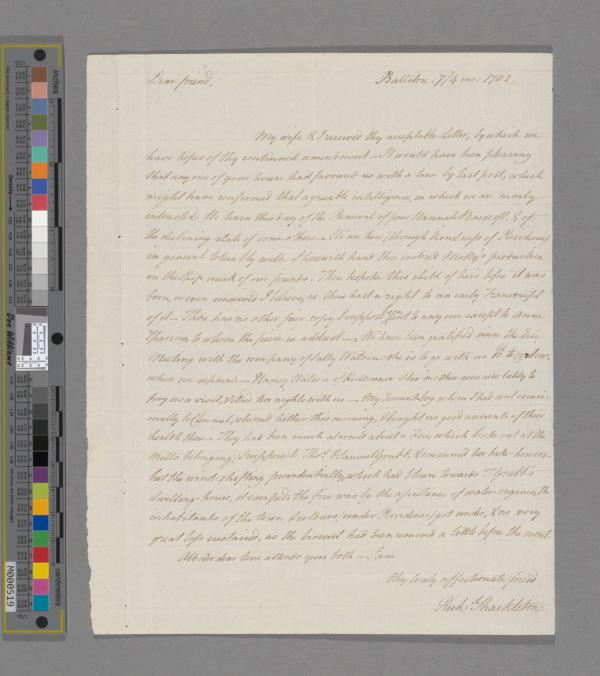 Dear friend,
Ballitore: 7/4 mo: 1782.
My wife & I received thy acceptable letter, by which we
have hopes of thy continued amendment — It would have been pleasing
that any one of your house had favoured us with a line by last post, which
might have confirmed that agreeable intelligence, in which we are nearly
interested. We learn this day of the Removal of poor Hannah Bancroft, & of
the declining state of some others — We are here (through Kindness of Providence)
in general tolerably well. I herewith hand thee inclosed Molly's production
on the Ship-wreck of our friends. Thou bespoke this child of hers before it was
born, or even conceived I believe, so thou hast a right to an early Transcript
of it — Thou has no other fair copy, I suppose, been sent to any one except to Anne
to whom the piece is addrest — We have been gratified since the
Meeting with the company of Sally Watson she is to go with us to Carlow,
when we separate — Nancy Watson of & her mother were also lately to
pay us a visit, & two nights with us — My Servant boy whom I had sent occasi-
onally to Clonmel, returned hither this morning, & brought us good accounts of their
health there — They had been much alarmed about a fire, which broke out at the
Mills belonging, I suppose, to Thos. & Samuel Grubb, & consumed two bake-houses —
but the wind shifting providentially, which had blown towards T. Grubb's
dwelling-house, & the fire was by the assistance of water-engines, the
inhabitants of the town & soldiers (under Providence) got under, & no very
great loss sustained, as the biscuit had been removed a little before the event.
All our dear love attends you both — I am
thy truly affectionate friend
Richd Shackleton
inches
centimetres
Don Williams
M000519